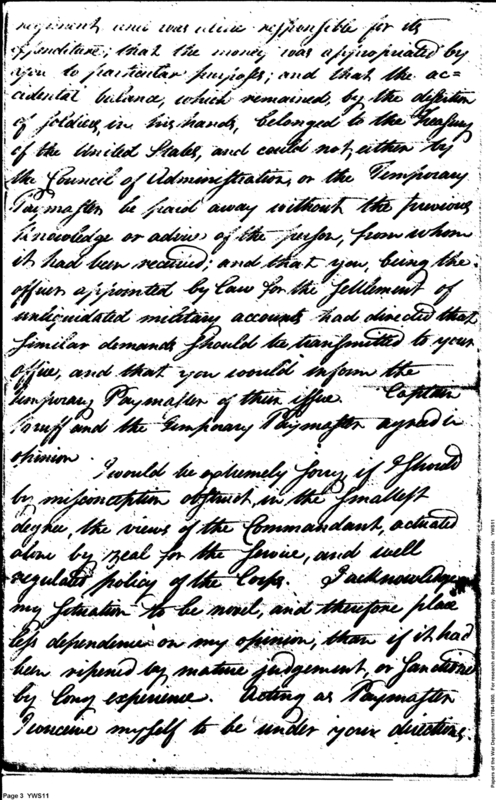 regiment and was alone responsible for its
expenditure; that the money was appropriated by
you to particular purposes; and that the ac=
cidental balance, which remained, by the desertion
of soldiers, in his hands, belonged to the Treasury
of the United States, and could not, either by
the Council of Administration, or the Temporary
Paymaster be paid away without the previous
knowledge or advice of the person, from whom
it had been received; and that you, being the
officer appointed by law for the settlement of
unliquidated military accounts had directed that
similar demands should be transmitted to your
office, and that you would inform the
temporary Paymaster of their issue. Captain
and the temporary Paymaster agreed in
opinion.
I would be extremely sorry if I should
by misconception obstruct, in the smallest
degree, the views of the Commandant, actuated
alone by zeal for the service, and well
regulated policy of the Corps. I acknowledge
my situation to be novel, and therefore place
less dependence on my opinion, than if it had
been ripened by mature judgement, or sanctioned
by long experience. Acting as Paymaster
I conceive myself to be under your directions.
Page 3 YWS11
Papers of the War Department 1784-1800. For research and instructional use only. See Permissions Guide. YWS11